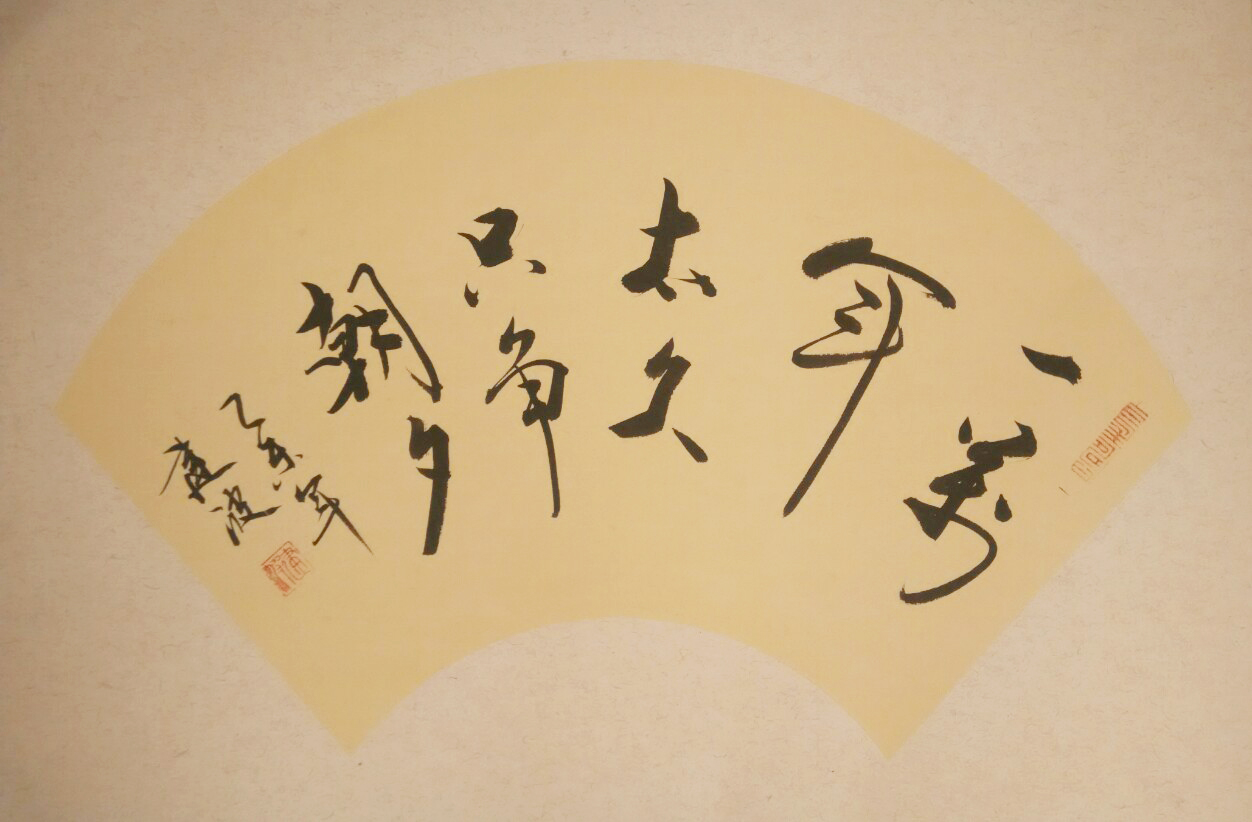 一萬
年
太久
只争
朝夕
乙未年
建波